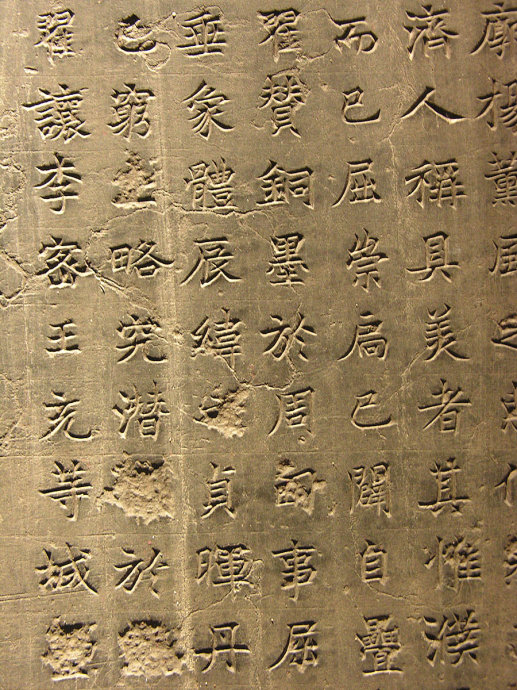 廓楊薰風之
濟人稱具美者其惟濮
而已屈崇扃已闡自疊
贊銅墨於周甸事屈
垂象體辰緯貞暉丹
窮略究潛於
翟讓李密王充等城